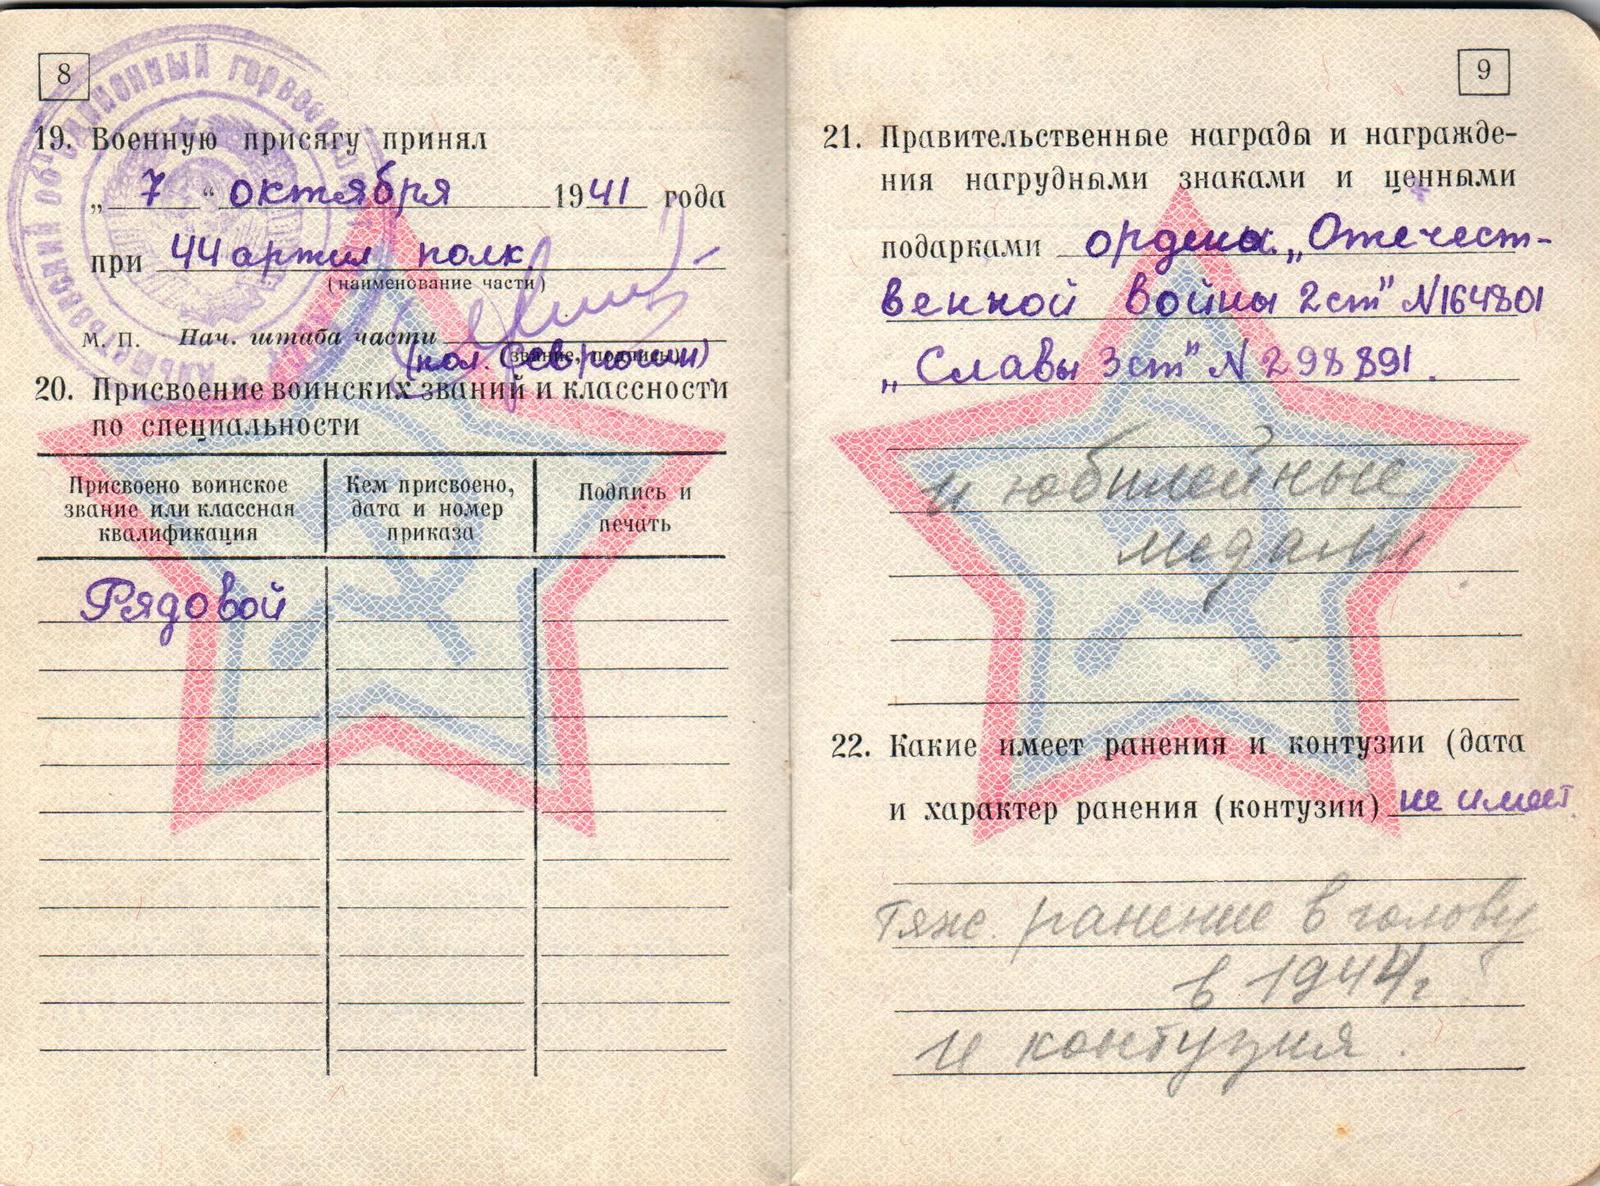 8
19. Военную присягу принял
„ 7 “ октября 1941 года
при 44 артил полк
(наименование части)
М. П. Нач. штаба части
(звание, подпись)
20. Присвоение воинских званий и классности
по специальности
Присвоено воинское
звание или классная
квалификация
Кем присвоено,
дата и номер
приказа
Подпись и
печать
Рядовой
9
21. Правительственные награды и награжде-
ния нагрудными знаками и ценными
подарками ордена „Отечест-
венной войны 2 ст" N 164801
„Славы 3 ст" N 298891.
и юбилейные
медали
22. Какие имеет ранения и контузии (дата
и характер ранения (контузии) не имеет.
Тяж. ранение в голову
в 1944 г
и контузия.